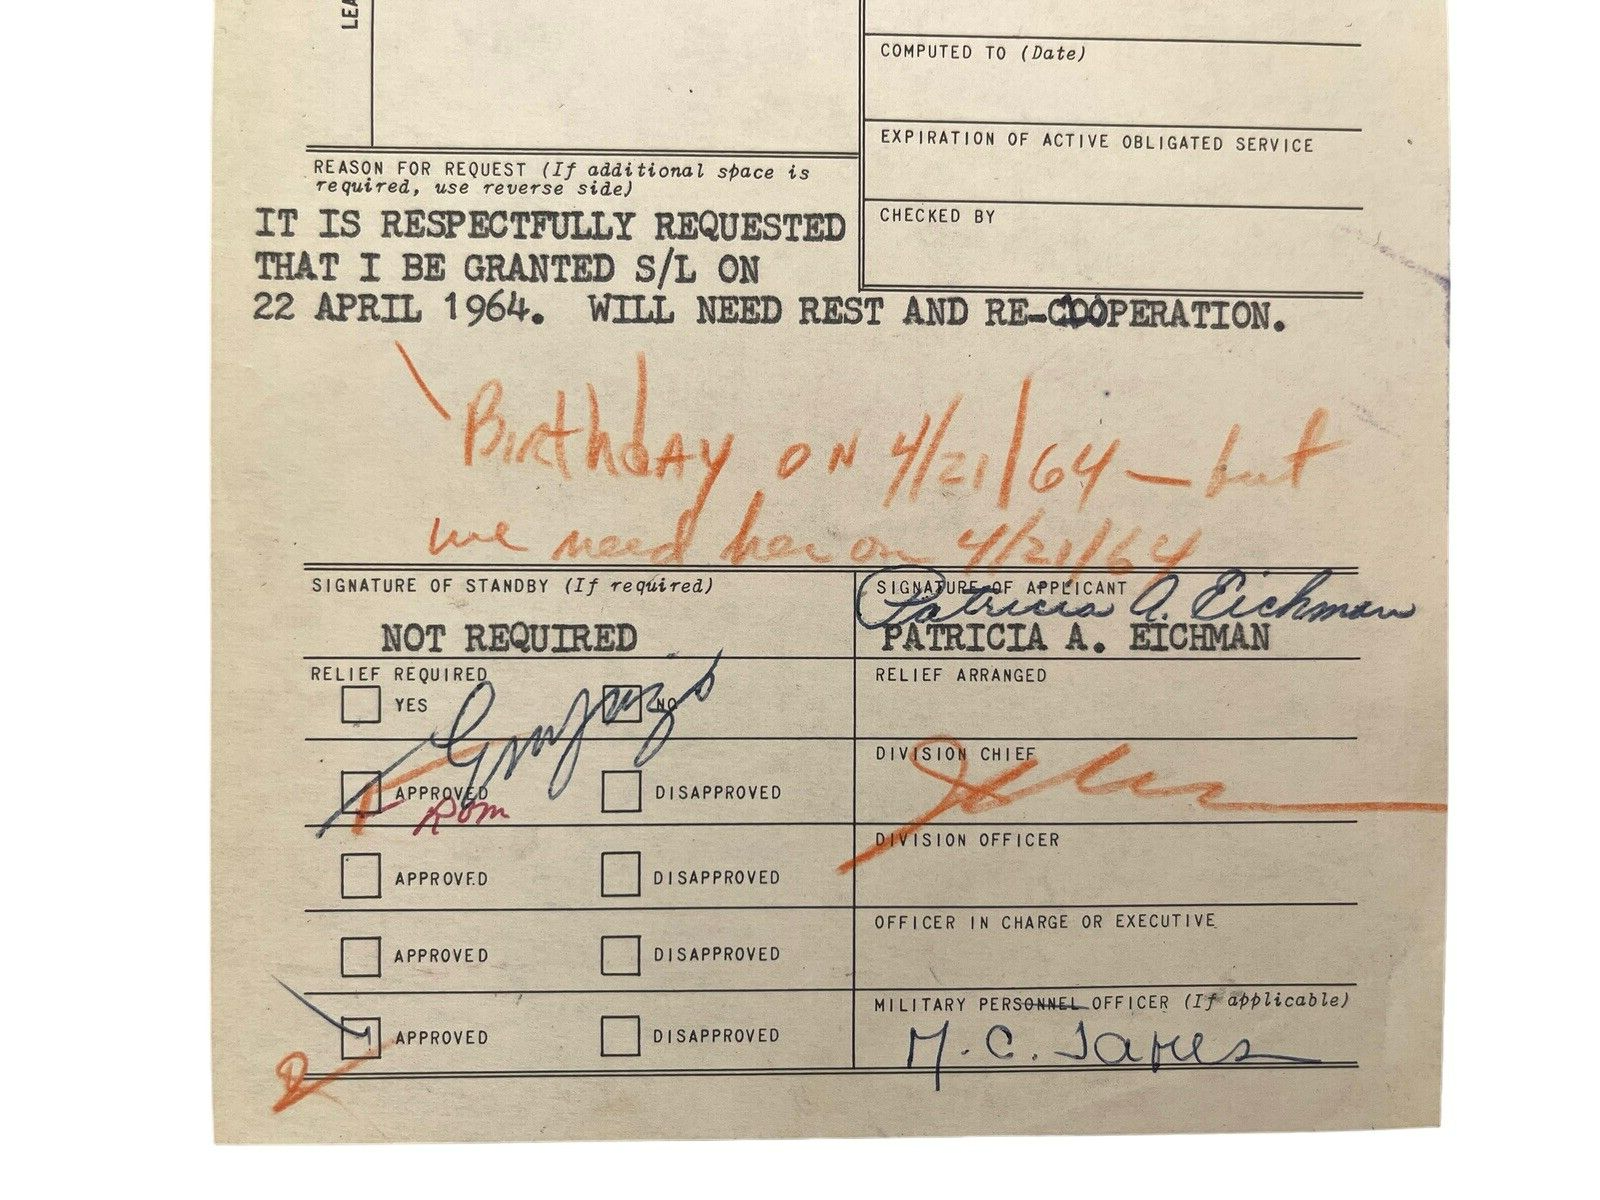 LEA
COMPUTED TO (Date)
EXPIRATION OF ACTIVE OBLIGATED SERVICE
CHECKED BY
REASON FOR REQUEST (If additional space is
required, use reverse side)
IT IS RESPECTFULLY REQUESTED
THAT I BE GRANTED S/L ON
22 APRIL 1964. WILL NEED REST AND RE-COOPERATION.
Birthday ON 4/21/64 — but
we need her on 4/21/64
SIGNATURE OF STANDBY (If required)
NOT REQUIRED
SIGNATURE OF APPLICANT
Patricia A. Eichman
PATRICIA A. EICHMAN
RELIEF REQUIRED
YES NO
RELIEF ARRANGED
APPROVED DISAPPROVED
DIVISION CHIEF
APPROVED DISAPPROVED
DIVISION OFFICER
APPROVED DISAPPROVED
OFFICER IN CHARGE OR EXECUTIVE
APPROVED DISAPPROVED
MILITARY PERSONNEL OFFICER (If applicable)
M. C.